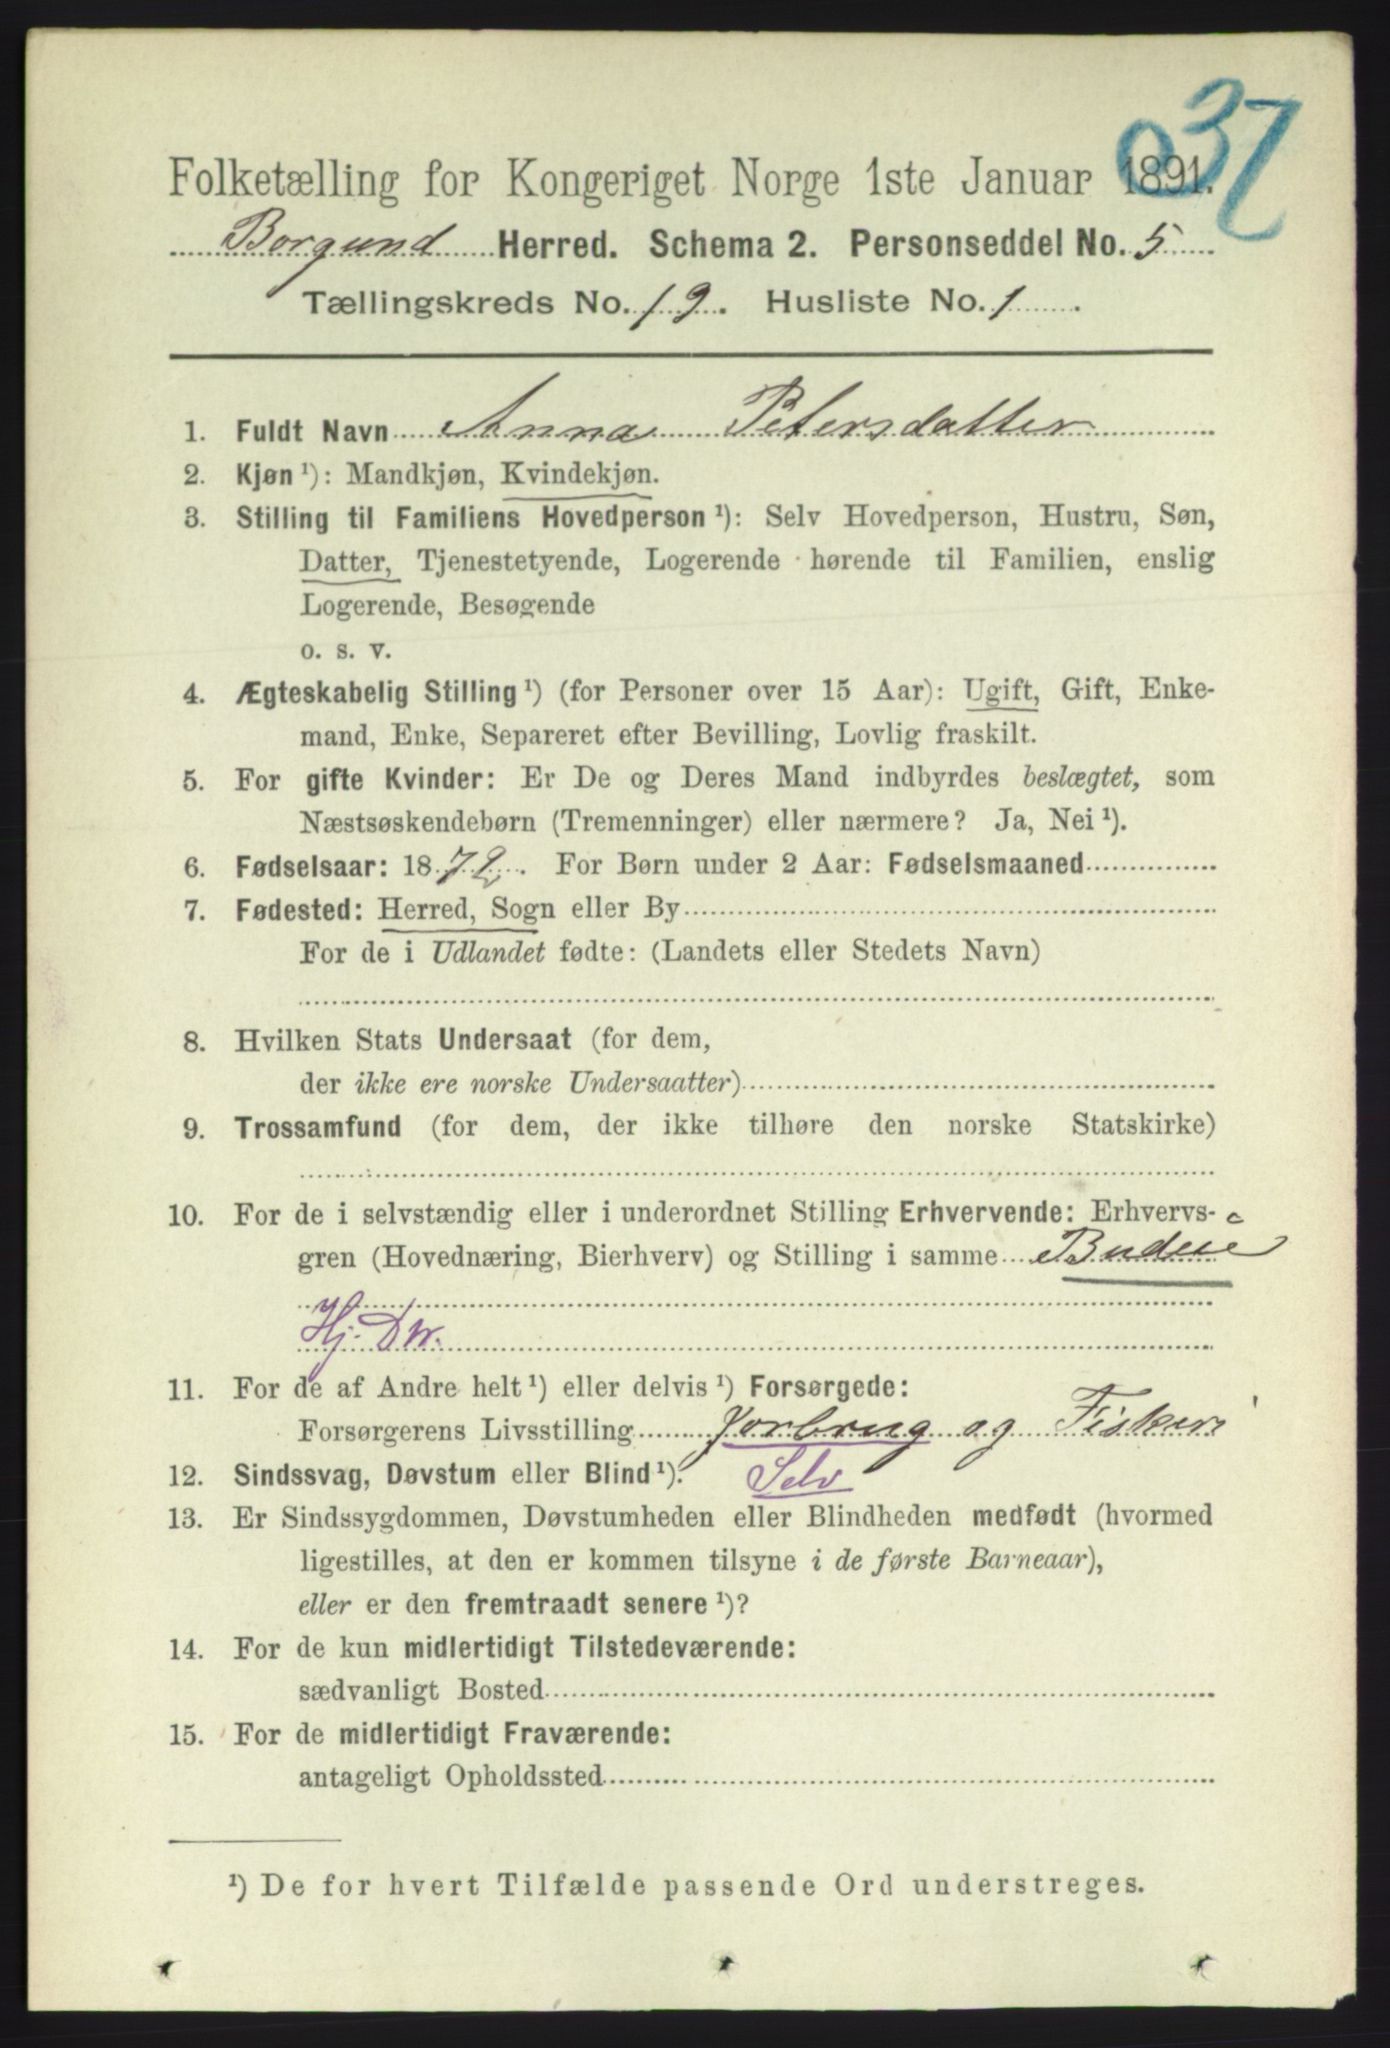 037
Folketælling for Kongeriget Norge 1ste Januar 1891.
Borgund Herred. Schema 2. Personseddel No. 5
Tællingskreds No. 19. Husliste No. 1
1. Fuldt Navn Anna Petersdatter
2. Kjøn ¹): Mandkjøn, Kvindekjøn.
3. Stilling til Familiens Hovedperson ¹): Selv Hovedperson, Hustru, Søn,
Datter, Tjenestetyende, Logerende hørende til Familien, enslig
Logerende, Besøgende
o. s. v.
4. Ægteskabelig Stilling ¹) (for Personer over 15 Aar): Ugift, Gift, Enke-
mand, Enke, Separeret efter Bevilling, Lovlig fraskilt.
5. For gifte Kvinder: Er De og Deres Mand indbyrdes beslægtet, som
Næstsøskendebørn (Tremenninger) eller nærmere? Ja, Nei ¹).
6. Fødselsaar: 1872. For Børn under 2 Aar: Fødselsmaaned
7. Fødested: Herred, Sogn eller By
For de i Udlandet fødte: (Landets eller Stedets Navn)
8. Hvilken Stats Undersaat (for dem,
der ikke ere norske Undersaatter)
9. Trossamfund (for dem, der ikke tilhøre den norske Statskirke)
10. For de i selvstændig eller i underordnet Stilling Erhvervende: Erhvervs-
gren (Hovednæring, Bierhverv) og Stilling i samme Budeie
Hj. Dtr.
11. For de af Andre helt ¹) eller delvis ¹) Forsørgede:
Forsørgerens Livsstilling Jorbrug og Fiskeri
12. Sindssvag, Døvstum eller Blind ¹). Selv
13. Er Sindssygdommen, Døvstumheden eller Blindheden medfødt (hvormed
ligestilles, at den er kommen tilsyne i de første Barneaar),
eller er den fremtraadt senere ¹)?
14. For de kun midlertidigt Tilstedeværende:
sædvanligt Bosted
15. For de midlertidigt Fraværende:
antageligt Opholdssted
¹) De for hvert Tilfælde passende Ord understreges.